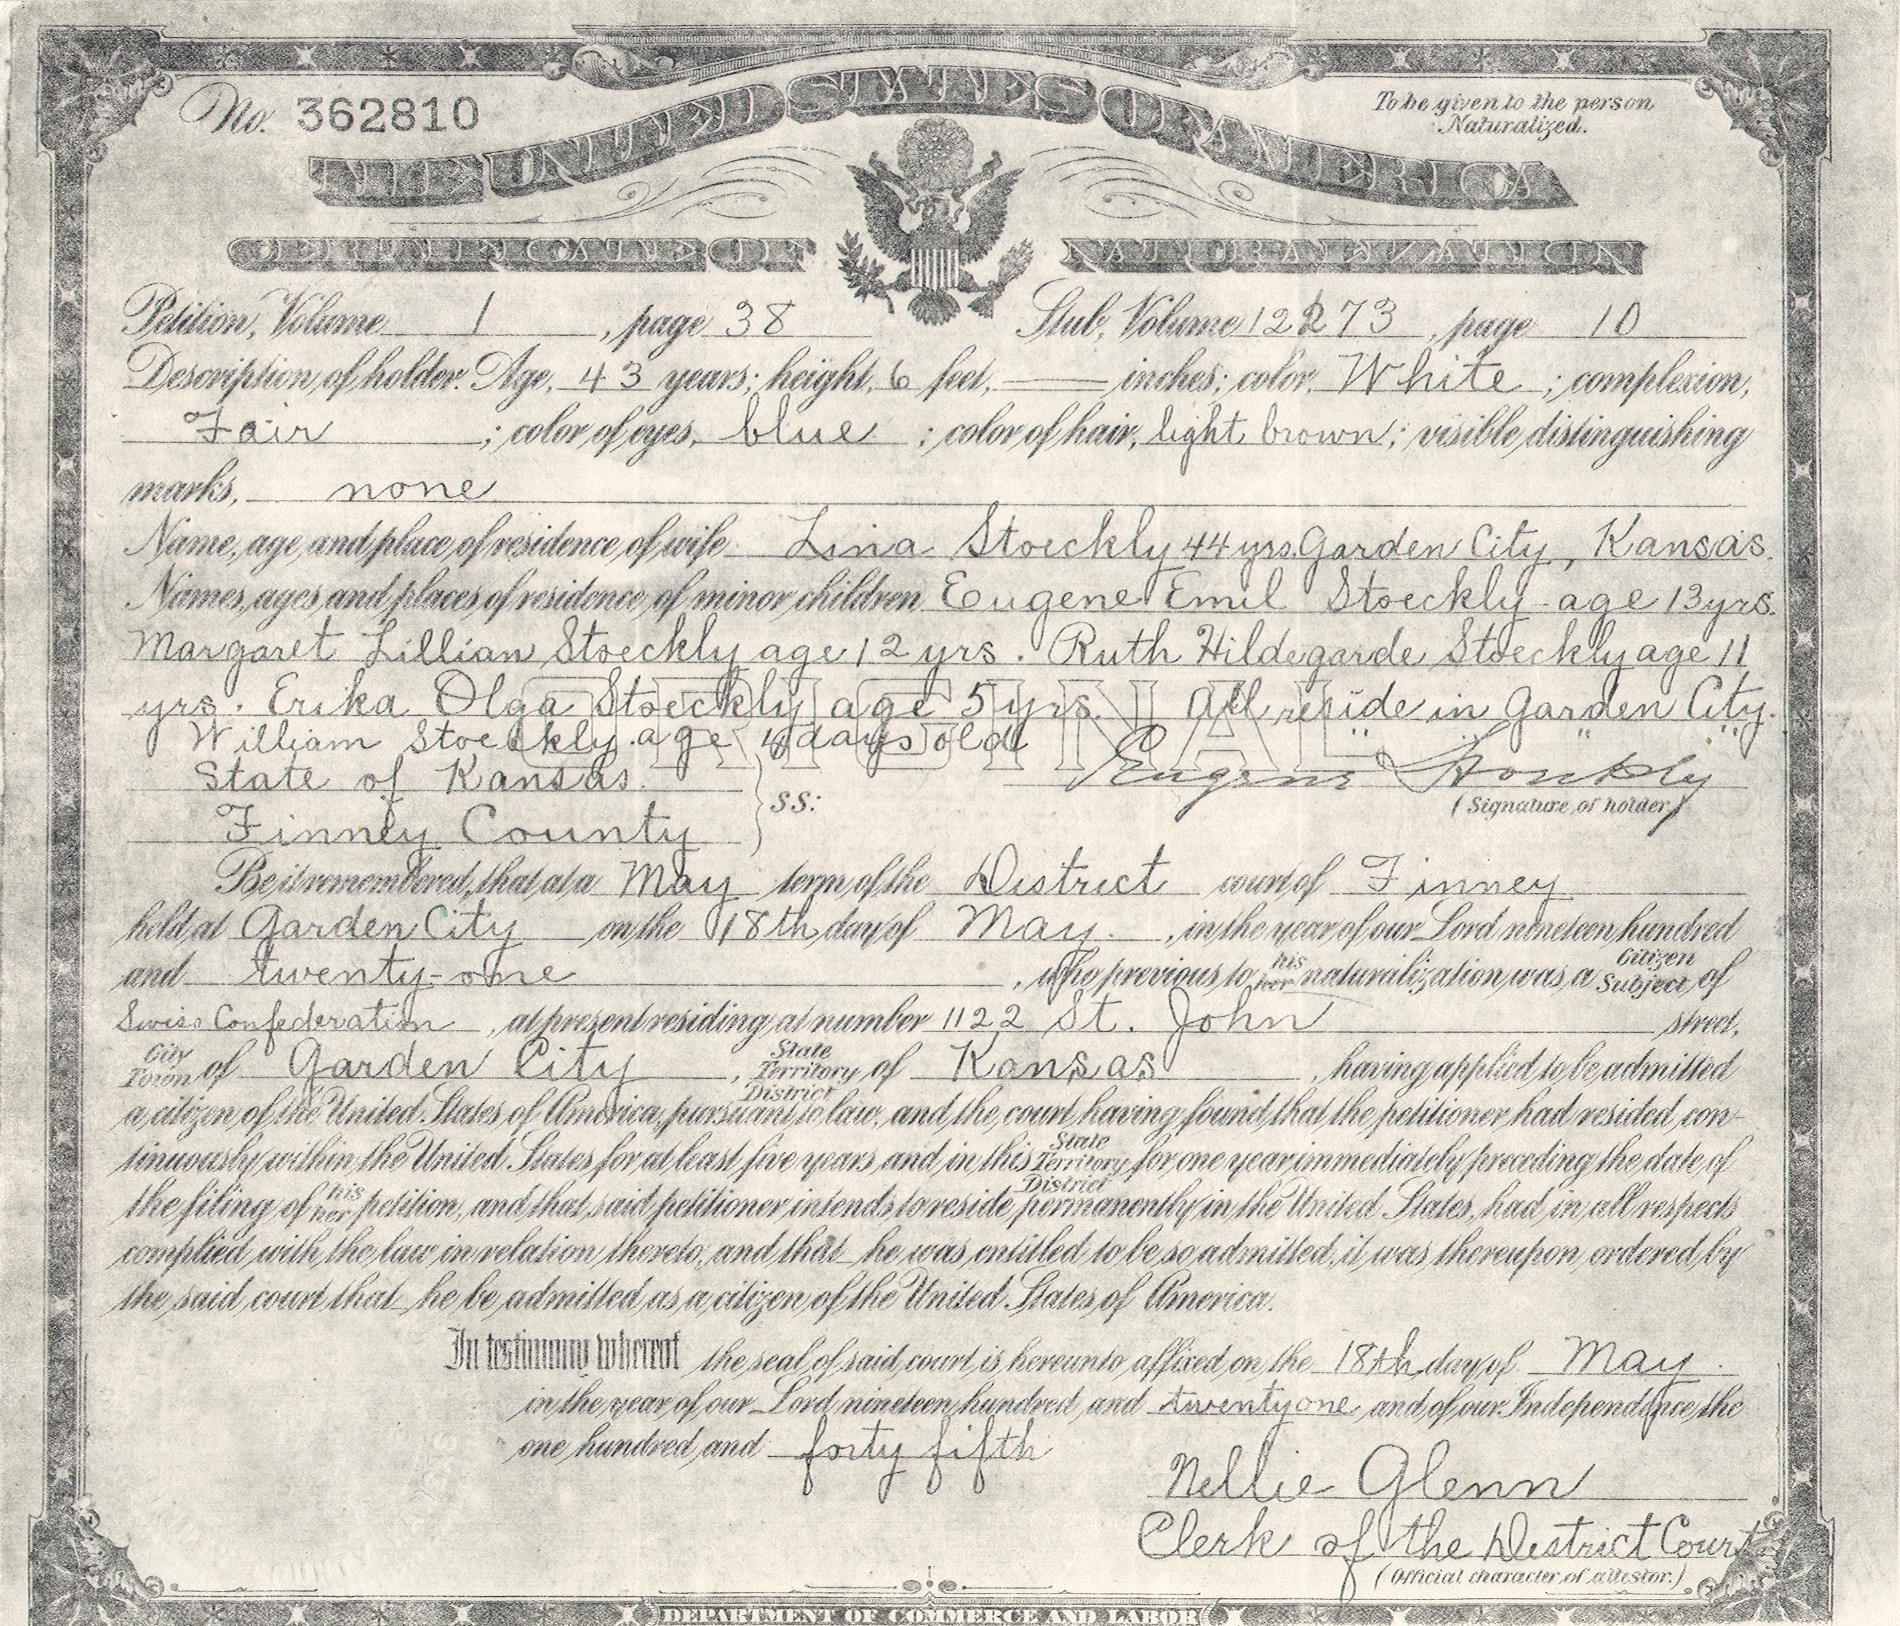 No. 362810
To be given to the person
Naturalized.
THE UNITED STATES OF AMERICA
CERTIFICATE OF NATURALIZATION
Petition, Volume 1, page 38 Stub, Volume 12273, page 10
Description of holder: Age, 43 years; height, 6 feet, —— inches; color, White; complexion,
Fair; color of eyes, blue; color of hair, light brown; visible distinguishing
marks, none
Name, age and place of residence of wife Lina Stoeckly 44 yrs. Garden City, Kansas.
Names, ages and places of residence of minor children Eugene Emil Stoeckly age 13 yrs.
Margaret Lillian Stoeckly age 12 yrs. Ruth Hildegarde Stoeckly age 11
yrs. Erika Olga Stoeckly age 5 yrs. All reside in Garden City.
ORIGINAL
William Stoeckly age days old " " "
State of Kansas. } ss: Eugene Stoeckly
(Signature of holder)
Finney County
Be it remembered, that at a May term of the District court of Finney
held at Garden City on the 18th day of May, in the year of our Lord nineteen hundred
and twenty-one, who previous to his her naturalization was a Citizen Subject of
Swiss Confederation, at present residing at number 1122 St. John street,
City Town of Garden City, State Territory District of Kansas, having applied to be admitted
a citizen of the United States of America, pursuant to law, and the court having found that the petitioner had resided con-
tinuously within the United States for at least five years and in this State Territory District for one year immediately preceding the date of
the filing of his her petition, and that said petitioner intends to reside permanently in the United States, had in all respects
complied with the law in relation thereto, and that he was entitled to be so admitted, it was thereupon ordered by
the said court that he be admitted as a citizen of the United States of America.
In testimony whereof the seal of said court is hereunto affixed on the 18th day of May
in the year of our Lord nineteen hundred and twenty one and of our Independence the
one hundred and forty fifth
Nellie Glenn
Clerk of the District Court
(Official character of attestor.)
DEPARTMENT OF COMMERCE AND LABOR